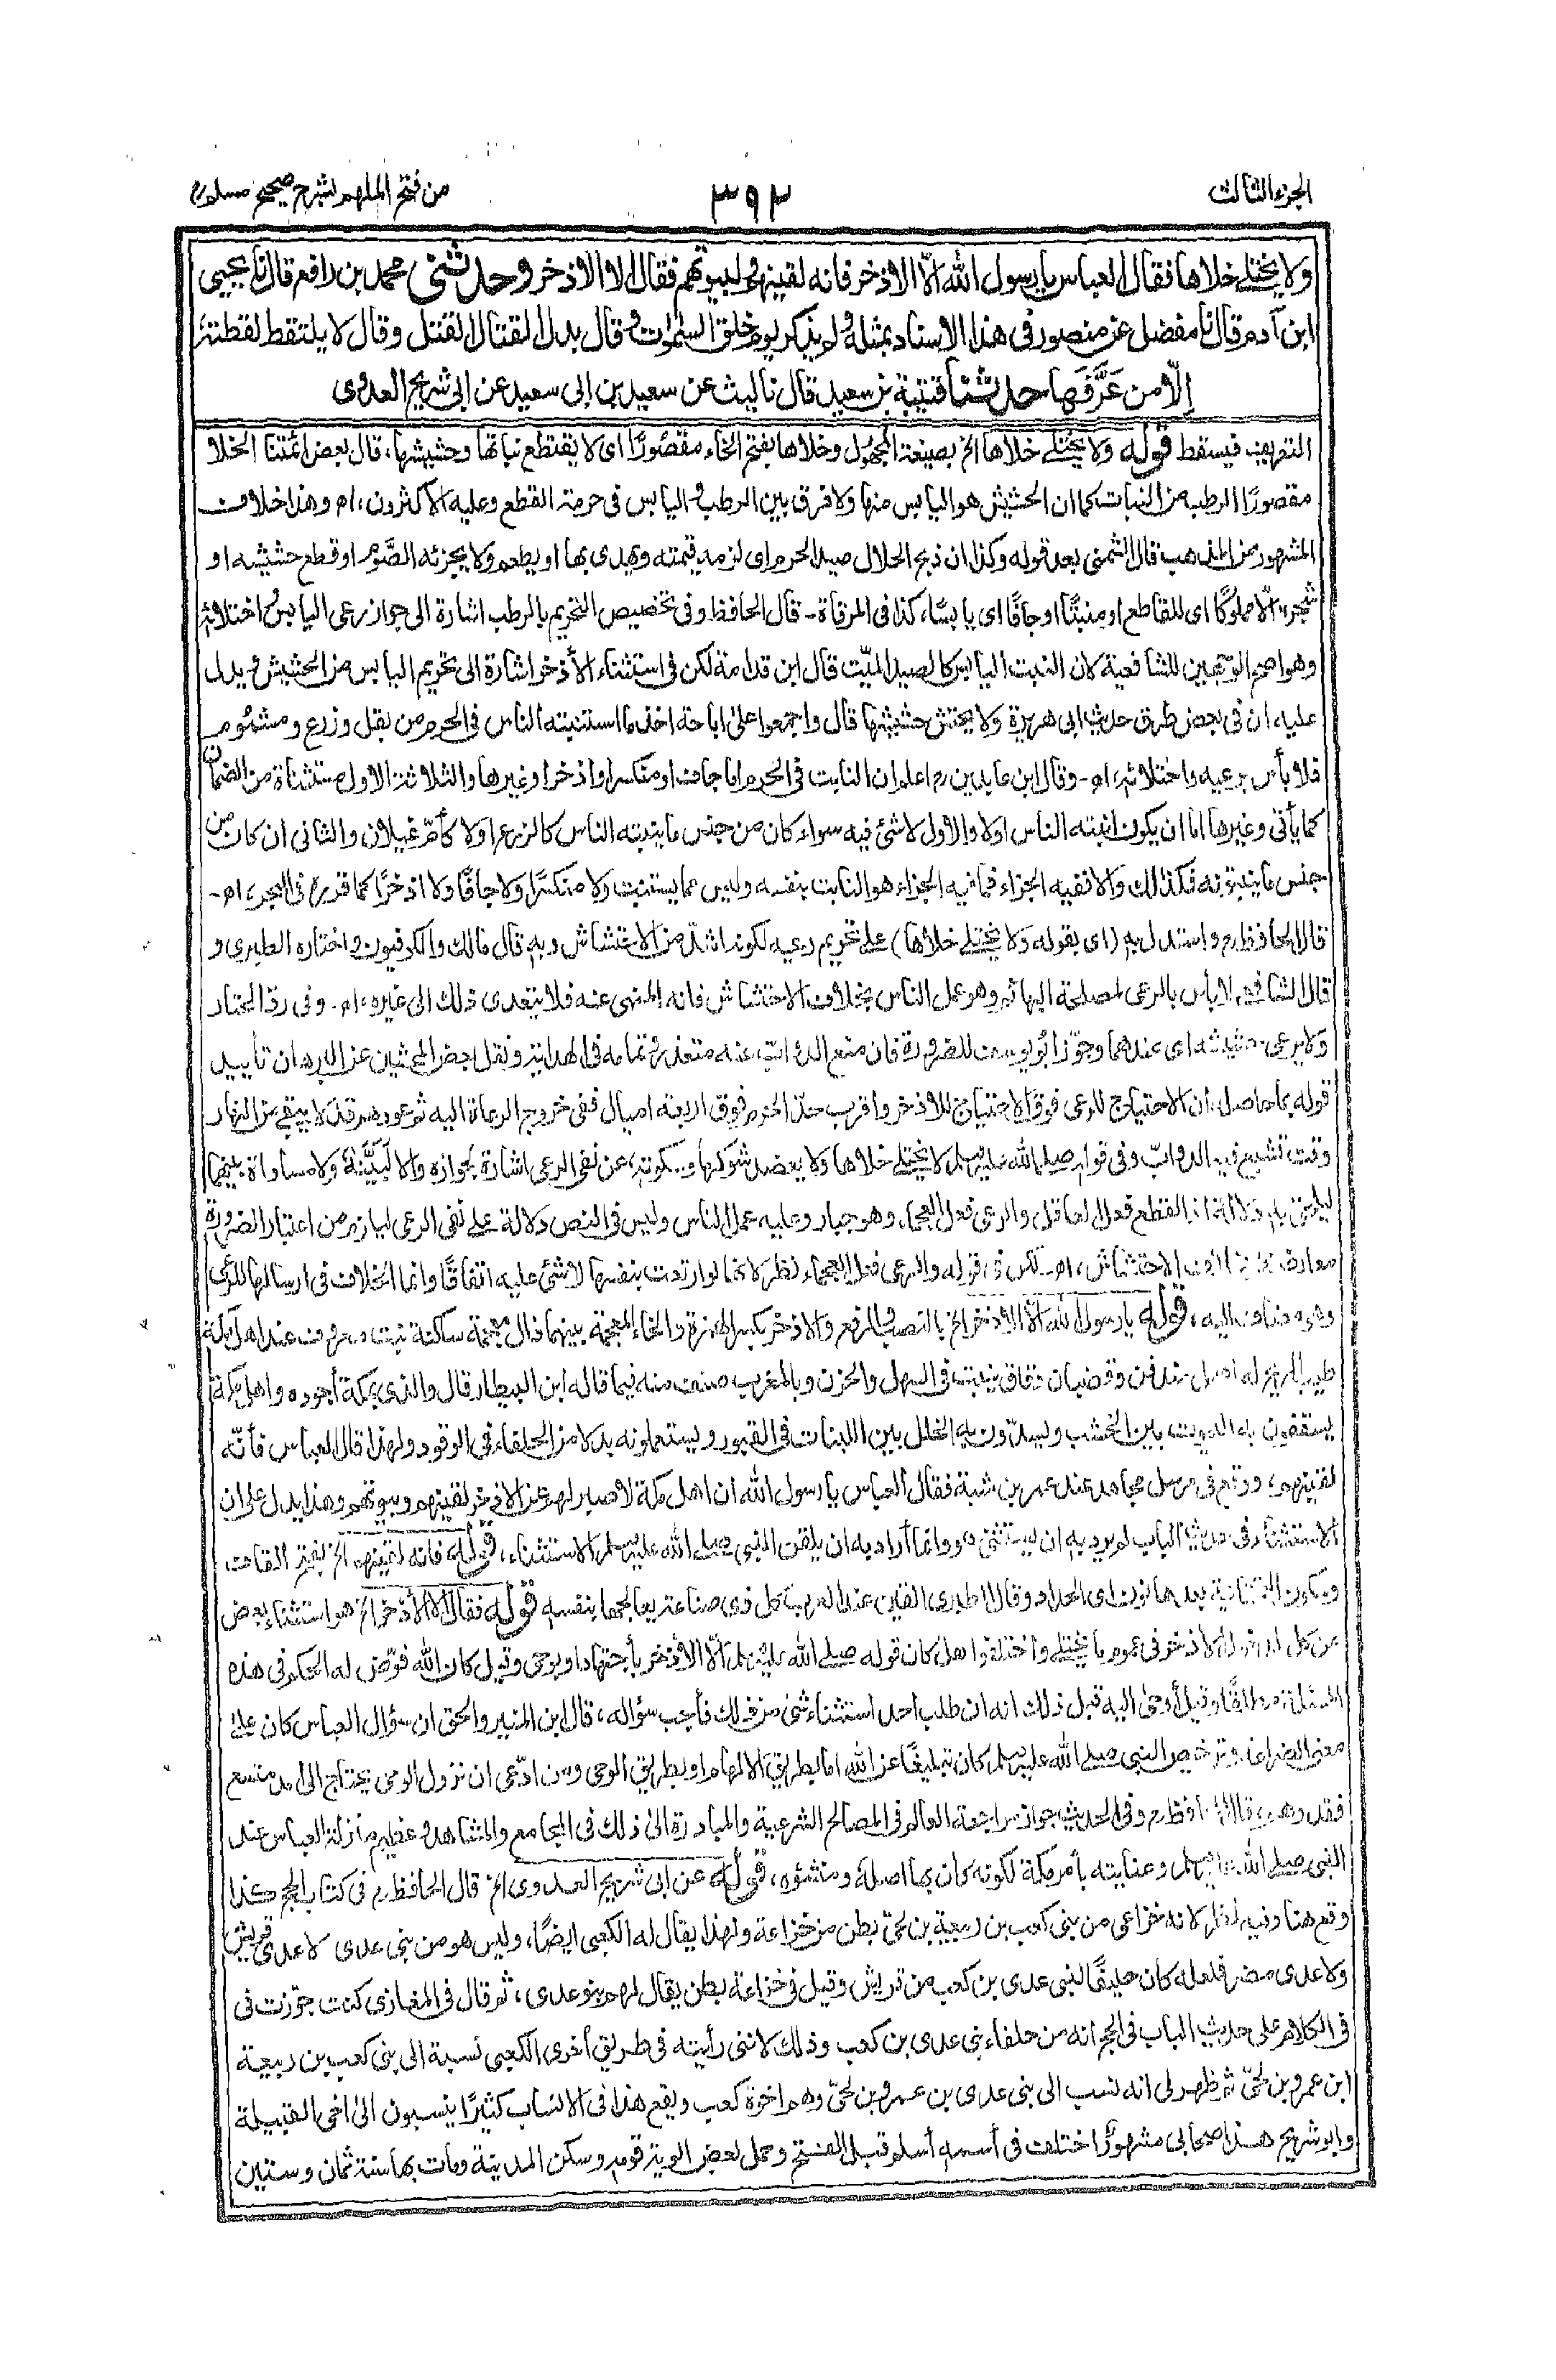 الجزء الثالث
٣٩٢
من فتح الملهم لشرح صحيح مسلم
ولا يختلى خلاها فقال العباس يا رسول الله الّا الاذخر فانه لقينهم ولبيوتهم فقال الا الاذخر وحدثنى محمد بن رافع قال نا يحيى
ابن آدم قال نا مفضل عن منصور فى هذا الاسناد بمثله ولم يذكر يوم خلق السمٰوات وقال بدل القتال القتل وقال لا يلتقط لقطته
اِلّا من عَرَّفَها حدثنا قتيبة بن سعيد قال نا ليث عن سعيد بن ابى سعيد عن ابى شريح العدوى
التعريف فيسقط قوله ولا يختلى خلاها الخ بصيغة المجهول وخلاها بفتح الخاء مقصورًا اى لا يقتطع نباتها وحشيشها، قال بعض ائمتنا الخلا
مقصورًا الرطب من النبات كما ان الحشيش هو اليابس منها ولا فرق بين الرطب واليابس فى حرمة القطع وعليه الاكثرون، اھ وهذا خلاف
المشهور من المذهب قال الشمنى بعد قوله وكذا ان ذبح الحلال صيد الحرم اى لزمه قيمته ويهدى بها او يطعم ولا يجزئه الصوم او قطع حشيشه او
شجره الّا مملوكًا اى للقاطع او منبتًا او جافًا اى يابسًا، كذا فى المرقاة - قال الحافظ وفى تخصيص التحريم بالرطب اشارة الى جواز رعى اليابس واختلائه
وهو اصح الوجهين للشافعية لان النبت اليابس كالصيد الميّت قال ابن قدامة لكن فى استثناء الأذخر اشارة الى تحريم اليابس من الحشيش ويدل
عليه ان فى بعض طرق حديث ابى هريرة ولا يحتش حشيشها قال واجمعوا على اباحة اخذ ما استنبته الناس فى الحرم من بقل وزرع ومشموم
فلا بأس برعيه واختلائه، اھ - وقال ابن عابدين رح اعلم ان النابت فى الحرم اما جاف او منكسر او اذخر او غيرها والثلاثة الاول مستثناة من الضمان
كما يأتى وغيرها اما ان يكون انبته الناس اولا والاول لا شئ فيه سواء كان من جنس ما ينبته الناس كالزرع اولا كأمّ غيلان والثانى ان كان من
جنس ما ينبتونه فكذلك والا ففيه الجزاء فما فيه الجزاء هو النابت بنفسه وليس مما يستنبت ولا منكسرًا ولا جافًا ولا اذخرًا كما قدره فى البحر، اھ -
قال الحافظ رح واستدل به (اى بقوله ولا يختلى خلاها) على تحريم رعيه لكونه اشدّ من الاحتشاش وبه قال مالك والكوفيون واختاره الطبرى و
قال الشافعى لا بأس بالرعى لمصلحة البهائم وهو عمل الناس بخلاف الاحتشاش فانه المنهى عنه فلا يتعدى ذلك الى غيره، اھ - وفى رد المحتار
ولا يرعى حشيشه اى عندهما وجوّز ابو يوسف للضرورة فان منع الدواب عنه متعذر وتمامه فى الهداية ونقل بعض المحشين عن البرهان تأييد
قوله بما حاصله ان الاحتياج للرعى فوق الاحتياج للاذخر واقرب حدّ الحرم فوق اربعة اميال ففى خروج الرعاة اليه ثم عودهم قد لا يبقى من النهار
وقت تشبع فيه الدوابّ وفى قوله صلى الله عليه وسلم لا يختلى خلاها ولا يعضد شوكها وسكوته عن نفى الرعى اشارة لجوازه والا لبَيَّنَه ولا مساواة بينهما
ليلحق به دلالة اذ القطع فعل العاقل والرعى فعل العجماء وهو جبار وعليه عمل الناس وليس فى النص دلالة على نفى الرعى ليلزم من اعتبار الضرورة
معارضته بخلاف الاحتشاش، اھ - لكن فى قوله والرعى فعل العجماء نظر لانها لو ارتعت بنفسها لا شئ عليه اتفاقًا وانما الخلاف فى ارسالها للرعى
وهو مضاف اليه، قوله يا رسول الله الّا الاذخر الخ بالنصب والرفع والاذخر بكسر الهمزة والخاء المعجمة بينهما ذال معجمة ساكنة نبت معروف عند اهل مكة
طيب الريح له اصل مندفن وقضبان دقاق ينبت فى السهل والحزن وبالمغرب صنف منه فيما قاله ابن البيطار قال والذى بمكة أجوده واهل مكة
يسقفون به البيوت بين الخشب ويسدّون به الخلل بين اللبنات فى القبور ويستعملونه بدلا من الحلفاء فى الوقود ولهذا قال العباس فأنّه
لقينهم، ووقع فى مرسل مجاهد عند عمر بن شبة فقال العباس يا رسول الله ان اهل مكة لا صبر لهم عن الاذخر لقينهم وبيوتهم وهذا يدل على ان
الاستثناء فى حديث الباب لم يرد به ان يستثنى هو وانما أراد به ان يلقن النبى صلى الله عليه وسلم الاستثناء، قوله فانه لقينهم الخ بفتح القاف
وسكون التحتانية بعدها نون اى الحداد وقال الطبرى القين عند العرب كل ذى صناعة يعالجها بنفسه قوله فقال الا الأذخر الخ هو استثناء بعض
من كل لدخول الاذخر فى عموم ما يختلى واختلفوا هل كان قوله صلى الله عليه وسلم الّا الاذخر بأجتهاد او بوحى وقيل كان الله فوّض له الحكم فى هذه
المسئلة مطلقًا وقيل أوحى اليه قبل ذلك انه ان طلب احد استثناء شئ من ذلك فأجب سؤاله، قال ابن المنير والحق ان سؤال العباس كان على
معنى الضراعة وترخيص النبى صلى الله عليه وسلم كان تبليغًا عن الله اما بطريق الالهام او بطريق الوحى ومن ادّعى ان نزول الوحى يحتاج الى امد متسع
فقد وهم، قال الحافظ رح وفى الحديث جواز مراجعة العالم فى المصالح الشرعية والمبادرة الى ذلك فى المجامع والمشاهد وعظيم منزلة العباس عند
النبى صلى الله عليه وسلم وعنايته بأمر مكة لكونه كان بها اصله ومنشؤه، قوله عن ابى شريح العدوى الخ قال الحافظ رح فى كتاب الحج كذا
وقع هنا وفيه نظر لانه خزاعى من بنى كعب بن ربيعة بن لحىّ بطن من خزاعة ولهذا يقال له الكعبى ايضًا، وليس هو من بنى عدى لا عدى قريش
ولا عدى مضر فلعله كان حليفًا لبنى عدى بن كعب من قريش وقيل فى خزاعة بطن يقال لهم بنو عدى، ثم قال فى المغازى كنت جوّزت فى
فى الكلام على حديث الباب فى الحج انه من حلفاء بنى عدى بن كعب وذلك لاننى رأيته فى طريق أخرى الكعبى نسبة الى بنى كعب بن ربيعة
ابن عمرو بن لحىّ ثم ظهر لى انه نسب الى بنى عدى بن عمرو بن لحىّ وهم اخوة كعب ويقع هذا فى الانساب كثيرًا ينسبون الى اخى القبيلة
وابو شريح هذا صحابى مشهور اختلف فى أسمه أسلم قبل الفتح وحمل بعض الوية قومه وسكن المدينة ومات بها سنة ثمان وستين